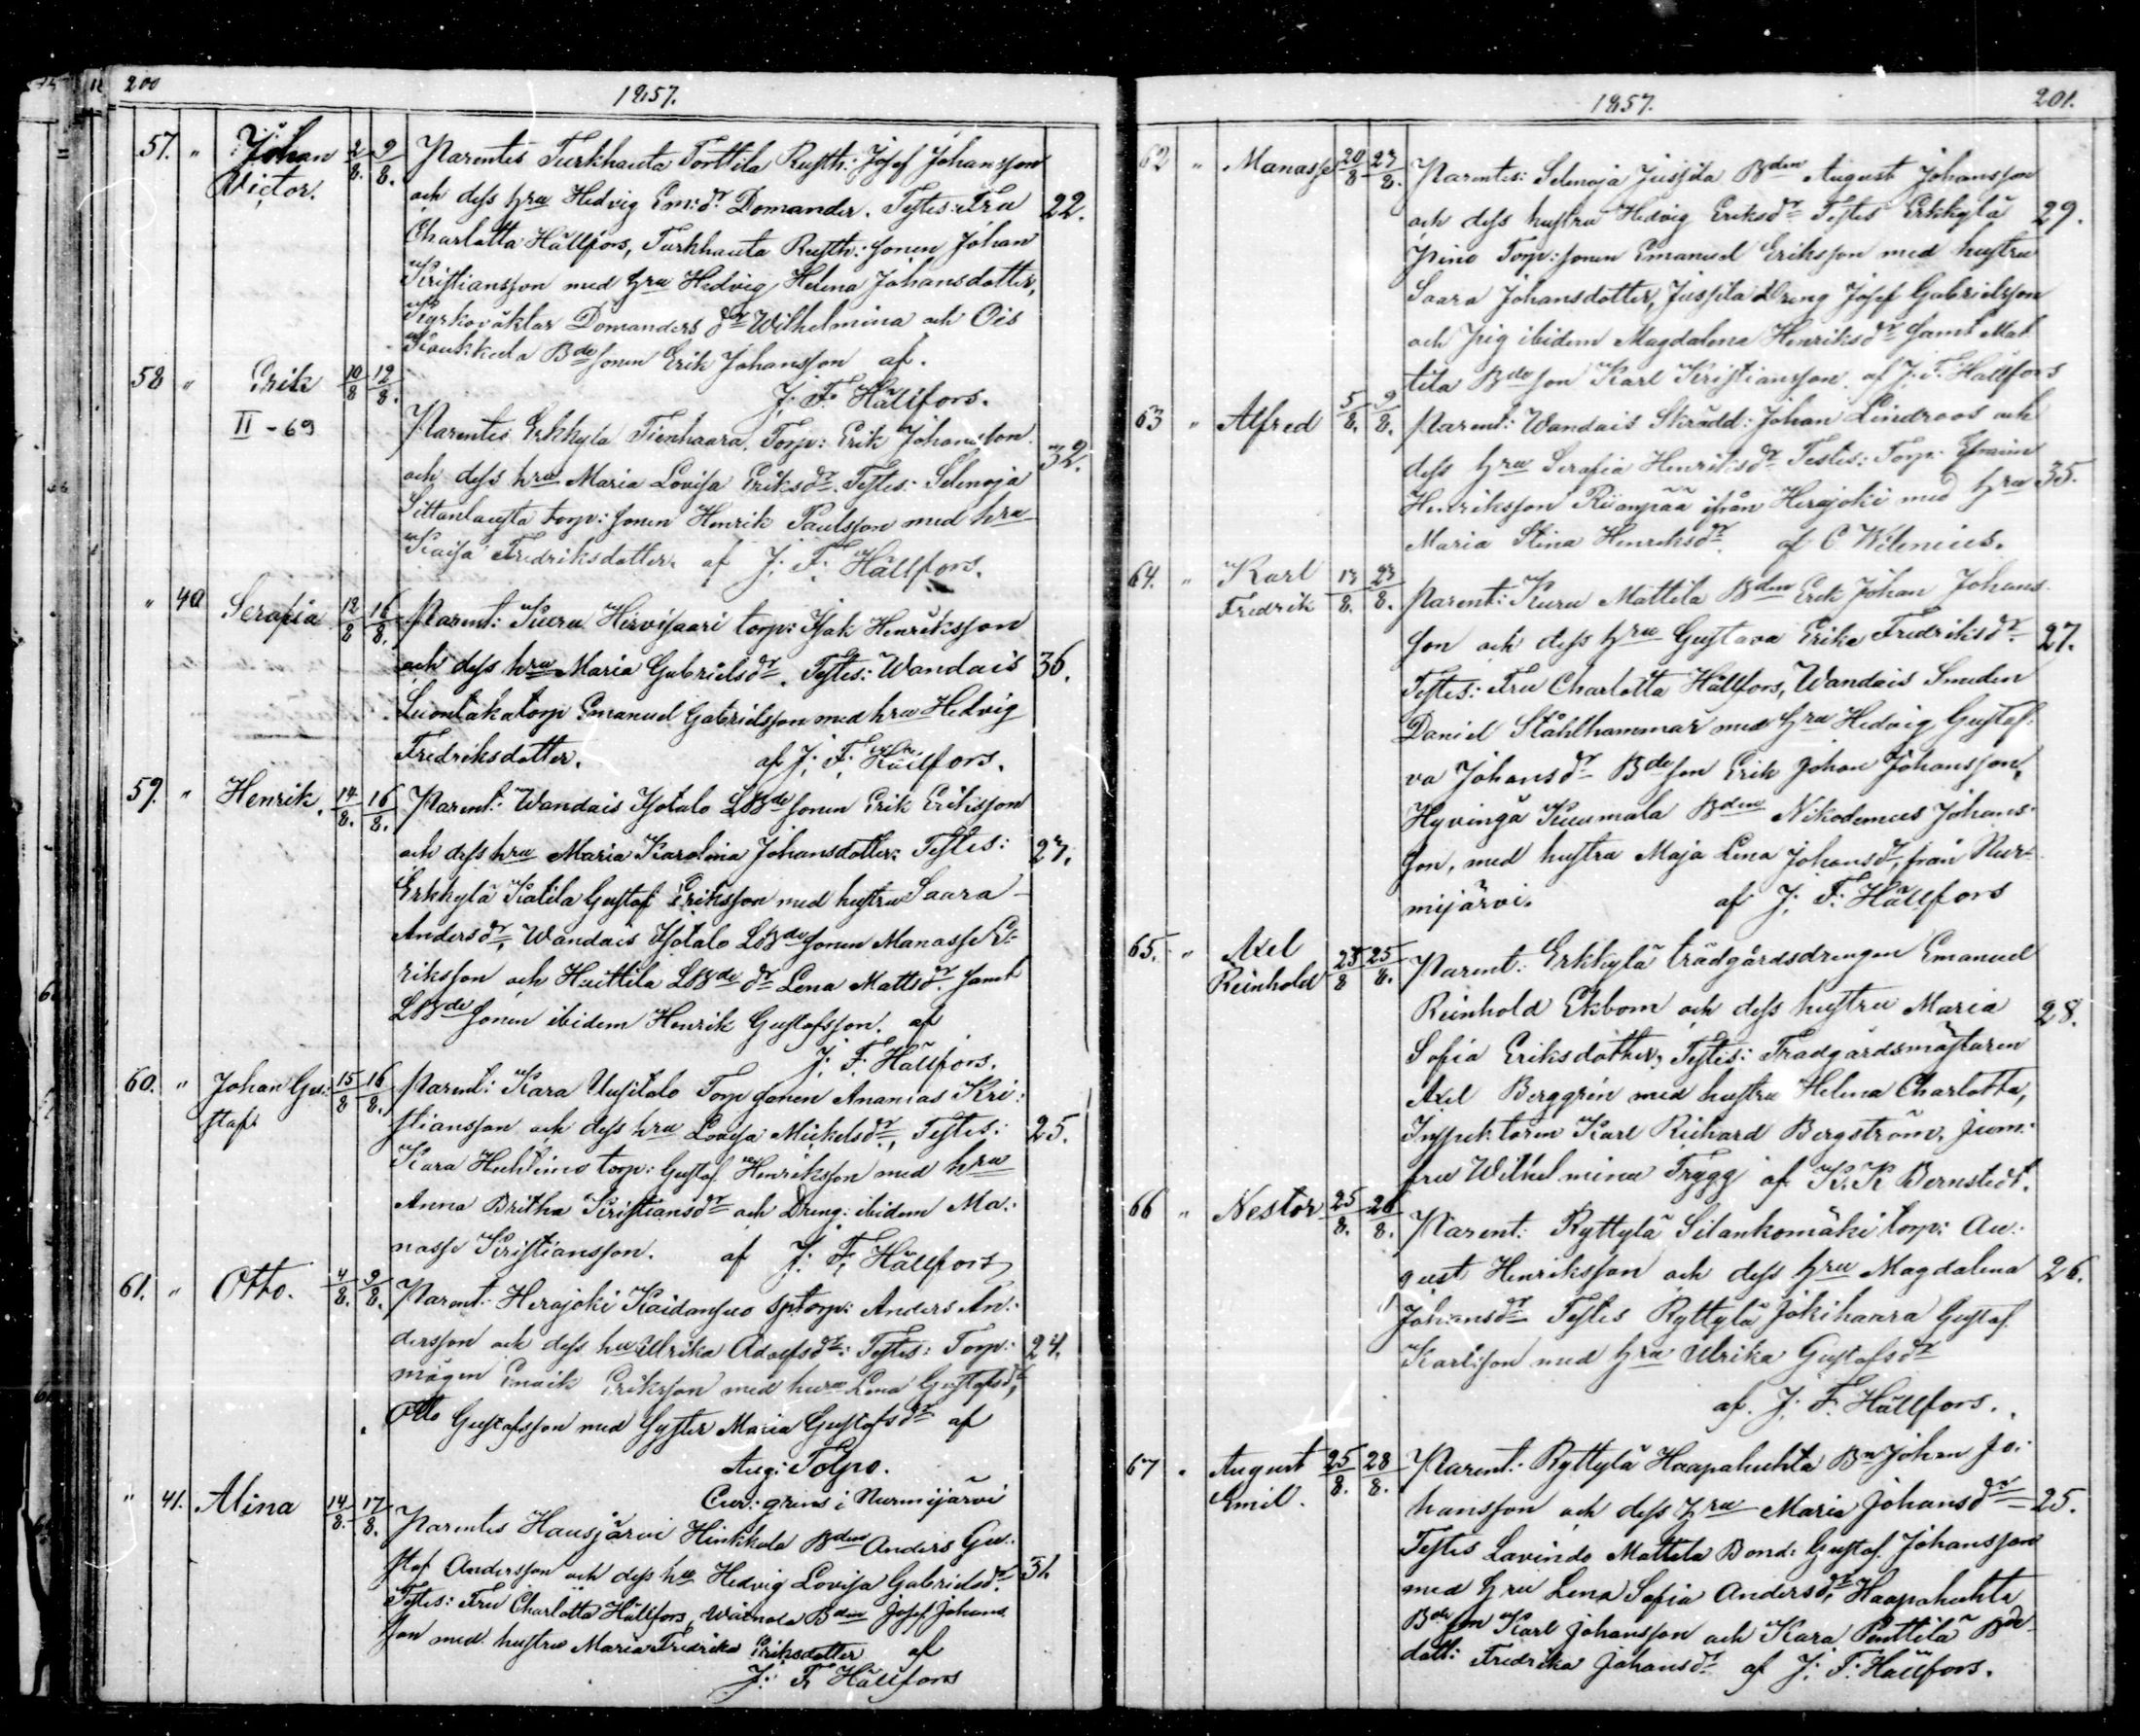 200
1857.
57. " Johan Victor. 2/8. 9/8. Parentes Turkhauta Torttila Rusth: Josef Johansson
och dess hru Hedvig Em:dr Domander. Testes: Fru 22.
Charlotta Hällfors, Turkhauta Rusth: sonen Johan
Kristiansson med hru Hedvig Helena Johansdotter,
Kyrkováktar Domanders dr Wilhelmina och Ois
Koukkula Bde sonen Erik Johansson af.
J: F: Hällfors.
58 " Erik 10/8 12/8. II - 69
Parentes Erkkyla Tienhaara Torp: Erik Johansson 32.
och dess hru Maria Lovisa Eriksdr. Testes: Selenoja
torp: sonen Henrik Paulsson med hru
Kaisa Fredriksdotter. af J: F: Hällfors.
" 40 Serafia 12/8 16/8. Parent: Kuru Hirvisaari torp: Isak Henriksson
och dess hru Maria Gabrielsdr. Testes: Wandais 36.
torp Emanuel Gabrielsson med hru Hedvig
Fredriksdotter. af J: F: Hällfors.
59. " Henrik. 14/8. 16/8. Parent: Wandais Isotalo LBde sonen Erik Eriksson
och dess hru Maria Karolina Johansdotter: Testes: 27.
Erkkylä Katila Gustaf Eriksson med hustru Saara
Andersdr, Wandais Isotalo LBde sonen Manasse E:
riksson och Huttila LBde dr Lena Mattsdr. samt
LBde sonen ibidem Henrik Gustafsson. af
J. F. Hällfors.
60. " Johan Gu: staf. 15/8 16/8. Parent: Kara Uusitalo Torp sonen Ananias Kri:
stiansson och dess hru Lovisa Mickelsdr., Testes: 25.
Kara Huhtimo torp: Gustaf Henriksson med hru
Anna Britha Kristiansdr och Dreng: ibidem Ma:
nasse Kristiansson. af J: F: Hällfors
61. " Otto. 4/8. 9/8. Parent: Herajoki Kaidansuo sptorp: Anders An:
dersson och dess hu Ulrika Adolfsdr: Testes: Torp: 24.
mågen Enaik Eriksson med huru Lena Gustafsdr,
Otto Gustafsson med Syster Maria Gustafsdr af
Aug: Tolpo.
Cur: i Nurmijärvi
" 41. Alina 14/8. 17/8. Parentes Hausjärvi Hinkkala Bden Anders Gu:
staf Andersson och dess hu Hedvig Lovisa Gabrielsdr. 31.
Testes: Fru Charlotta Hällfors, Bden Josef Johans
son med hustru Maria Fredrika Eriksdotter af
J: F: Hällfors
1857. 201.
62 " Manasse 20/8 23/8. Parentes: Selenoja Jussila Bden August Johansson
och dess hustru Hedvig Eriksdr Testes Erkkylä 29.
Torp: sonen Emanuel Eriksson med hustru
Saara Johansdotter, Jussila Dreng Josef Gabrielsson
och Pig ibidem Magdalena Henriksdr samt Mat
tila Bde son Karl Kristiansson. af J: F: Hällfors
63 " Alfred 5/8. 9/8. Parent: Wandais Skrädd: Johan Lindroos och
dess hru Serafia Henriksdr Testes: Torp: Efraim
Henriksson ifrån Herajoki med hru 35.
Maria Stina Henriksdr. af C Wilenius.
64. " Karl Fredrik 13/8. 23/8. Parent: Kuru Mattila Bden Erik Johan Johans
son och dess hru Gustava Erika Fredriksdr. 27.
Testes: Fru Charlotta Hällfors, Wandais Smeden
Daniel Stålhammar med hru Hedvig Gustaf:
va Johansdr Bde son Erik Johan Johansson,
Hyvingä Kuumala Bden Nikodemus Johans:
son, med hustru Maja Lena Johansdr, från Nur:
mijärvi. af J: F: Hällfors
65. " Axel Reinhold 23/8 25/8. Parent: Erkkylä trädgårdsdrengen Emanuel
Reinhold Ekbom och dess hustru Maria 28.
Sofia Eriksdotter, Testes: Trädgårdsmästaren
Axel Berggrén med hustru Helena Charlotta,
Inspektoren Karl Richard Bergström, jum:
fru Wilhelmina Trygg af K. K Bernstedt.
66 " Nestor 25/8. 26/8. Parent: Ryttylä Silankomäki torp: Au:
gust Henriksson och dess hru Magdalena 26.
Johansdr Testes Ryttylä Jokihaara Gustaf
Karlsson med hru Ulrika Gustafsdr
af. J: F: Hällfors.
67 " August Emil. 25/8. 28/8. Parent: Ryttylä Haapahuhta Bn Johan Jo:
hansson och dess hru Maria Johansdr 25.
Testes Lavindo Mattila Bond: Gustaf Johansson
med hru Lena Sofia Andersdr, Haapahuhta
Bde son Karl Johansson och Kara Penttilä Bde
dott: Fredrika Johansdr af J: F: Hällfors.